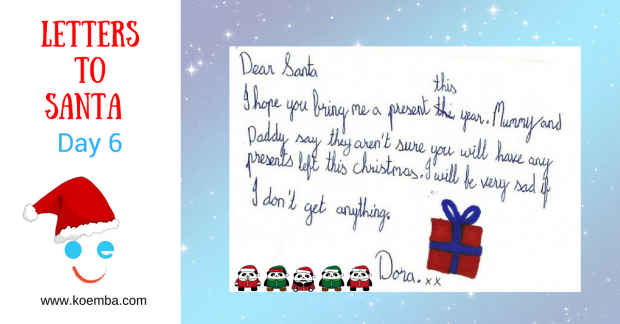 LETTERS
TO
SANTA
Day 6
www.koemba.com
Dear Santa
this
I hope you bring me a present thi year. Mummy and
Daddy say they aren't sure you will have any
presents left this christmas. I will be very sad if
I don't get anything.
Dora. xx